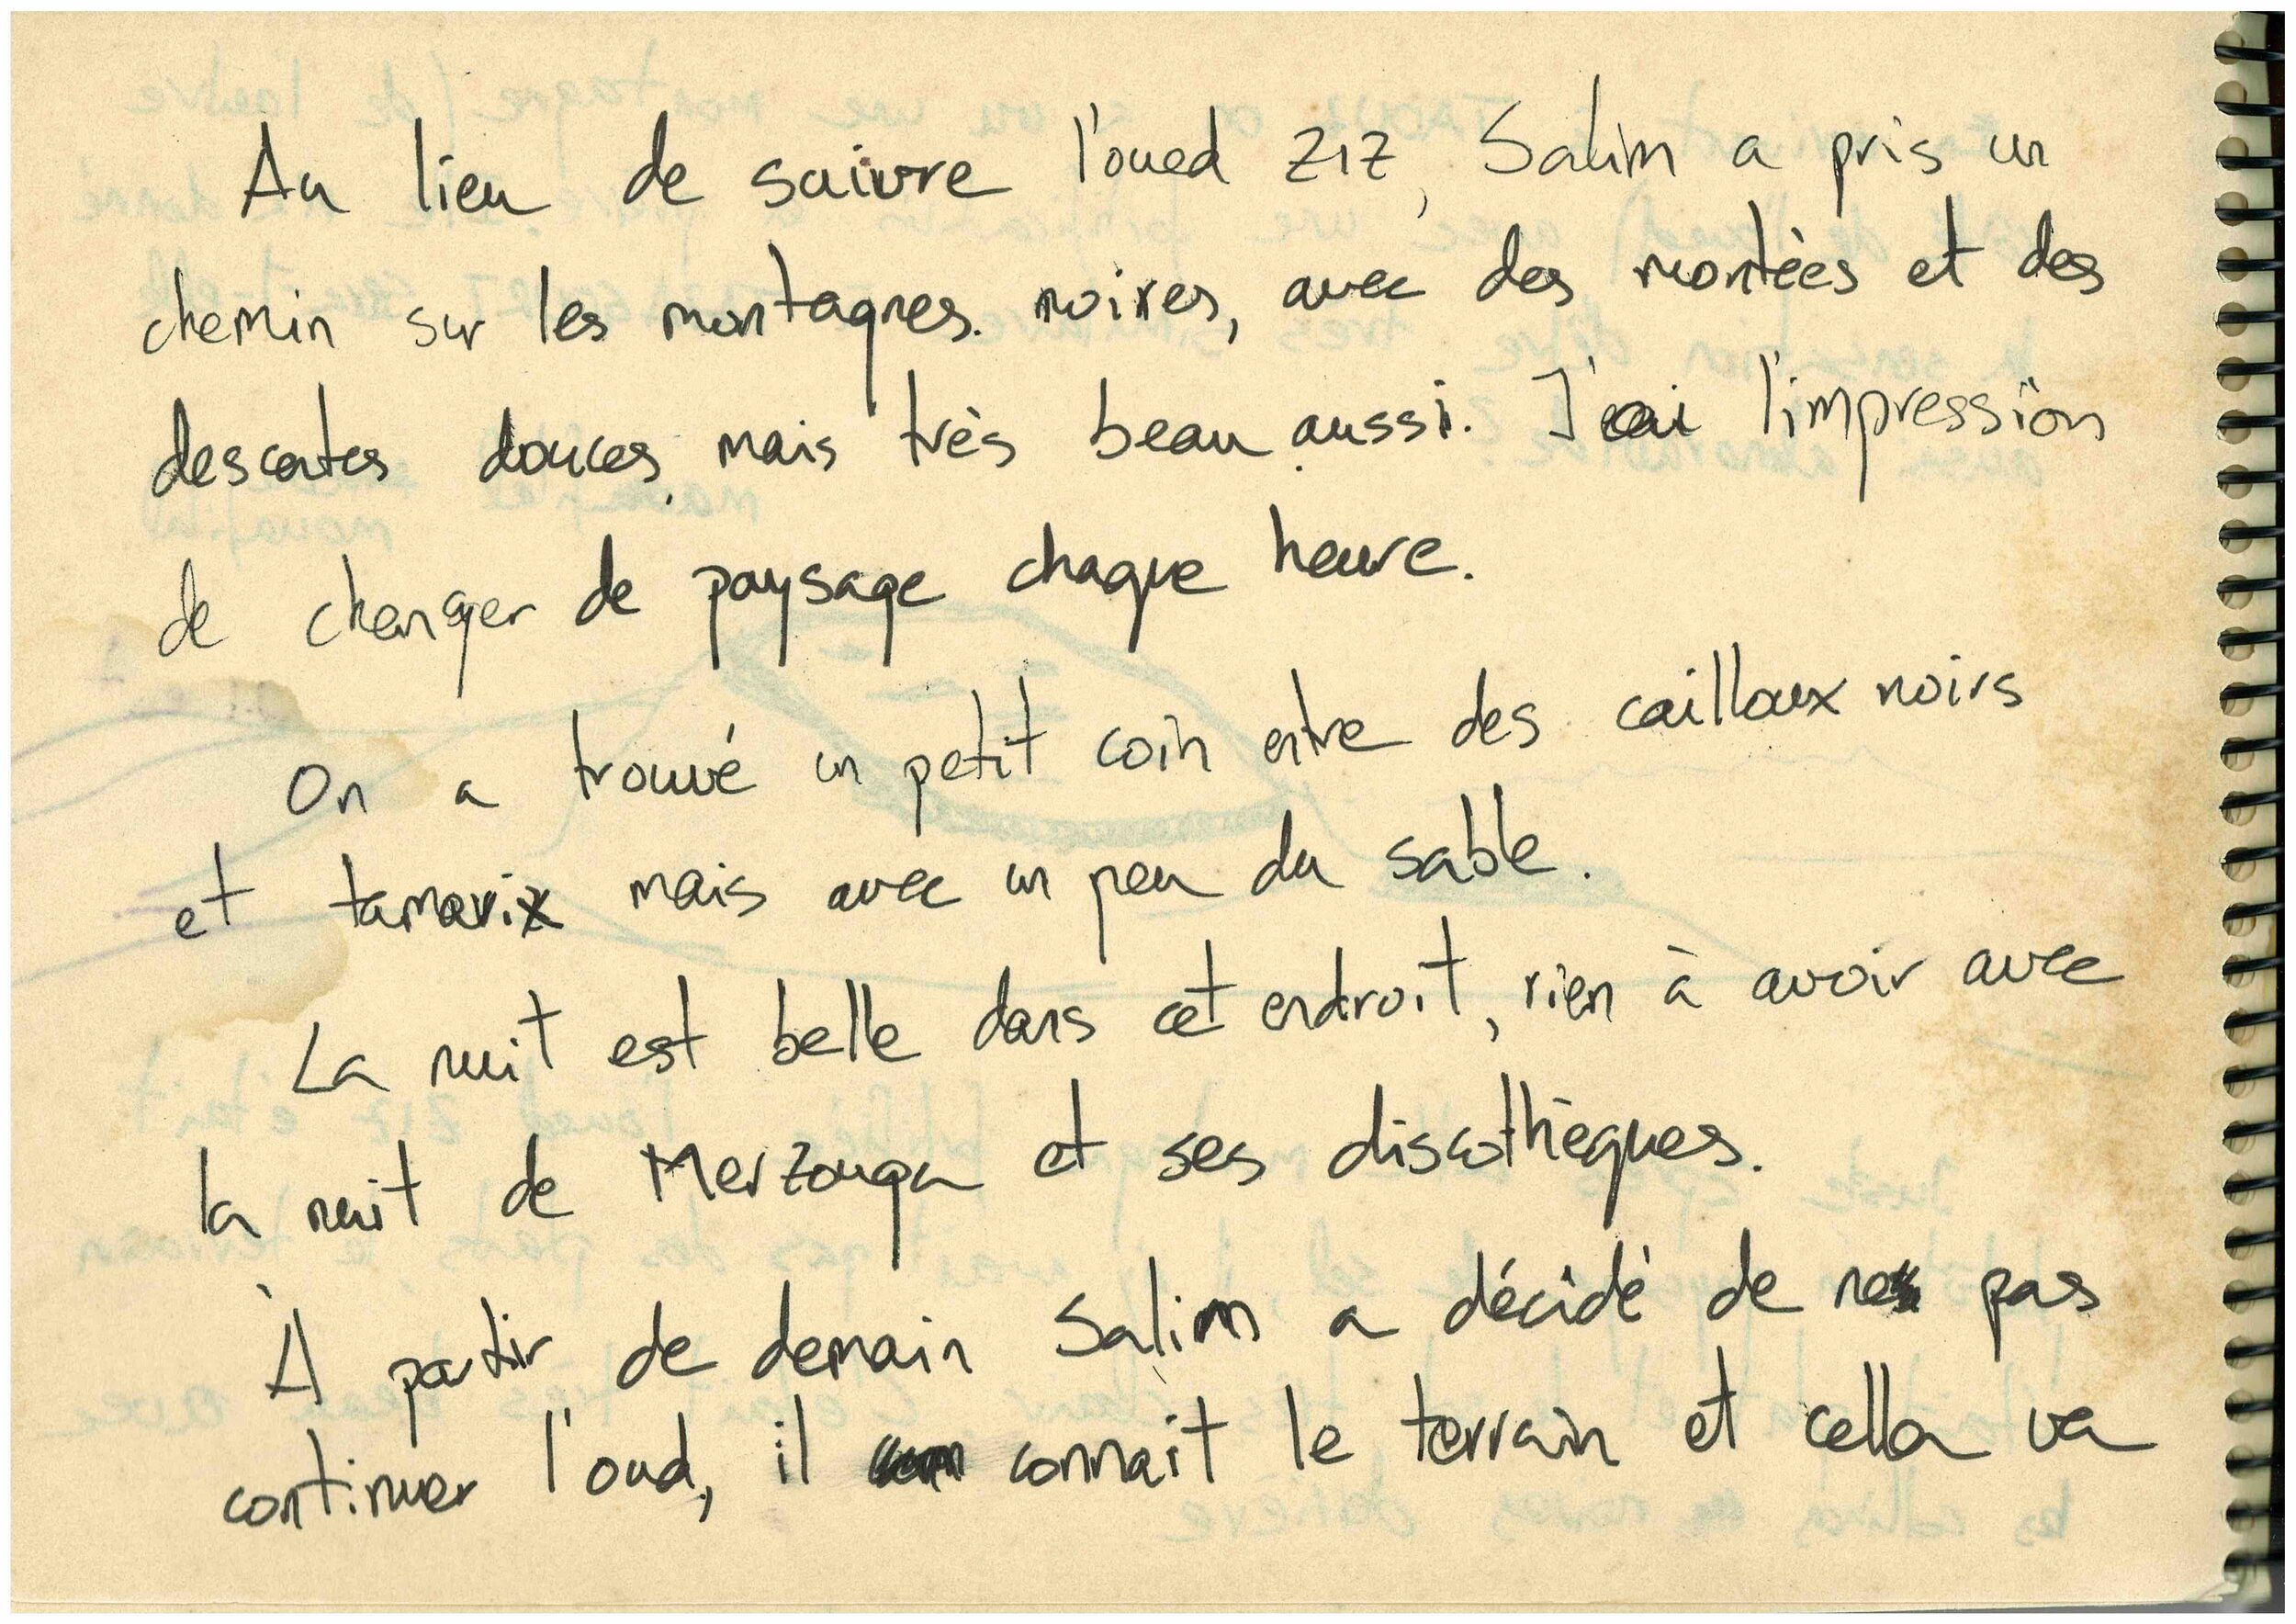 Au lieu de suivre l'oued ZIZ, Salim a pris un
chemin sur les montagnes noires, avec des montèes et des
descentes douces, mais très beau aussi. J'ai l'impression
de changer de paysage chaque heure.
On a trouvé un petit coin entre des cailloux noirs
et tamarix mais avec un peu du sable.
La nuit est belle dans cet endroit, rien à avoir avec
la nuit de Merzouga et ses discothèques.
À partir de demain Salim a décidé de ne pas
continuer l'oud, il connait le terrain et cella va